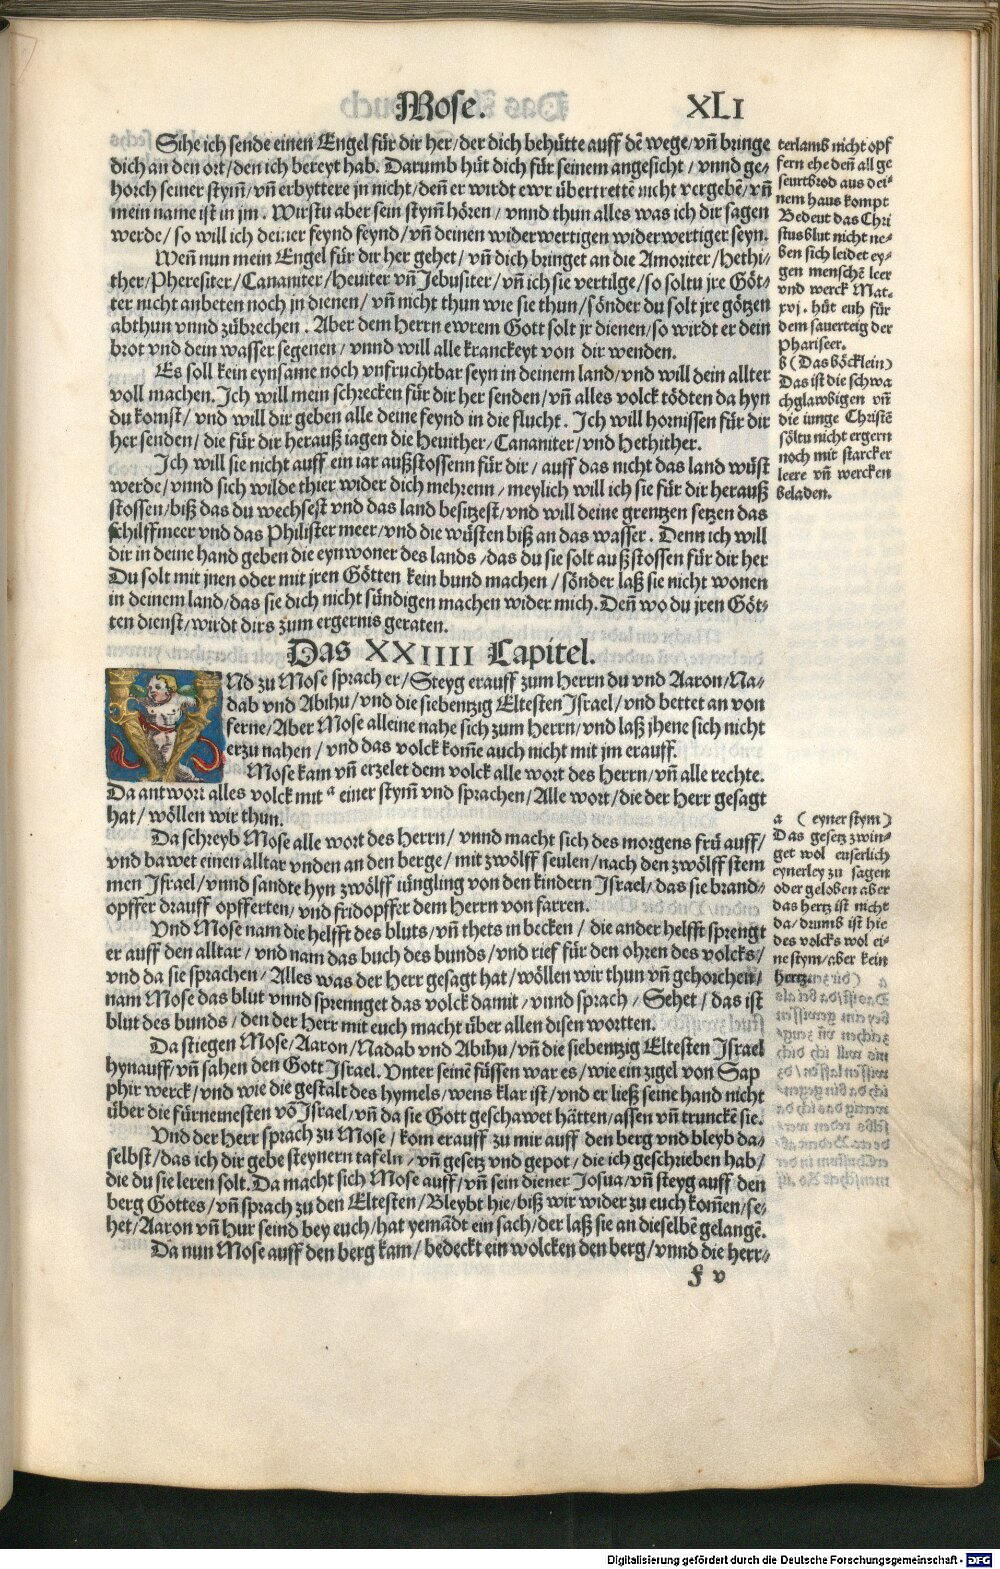 Mose. XLI
Sihe ich sende einen Engel für dir her/der dich behütte auff dē wege/vn̄ bringe
dich an den ort/den ich bereyt hab. Darumb hüt dich für seinem angesicht/vnnd ge⸗
horch seiner stym̄/vn̄ erbyttere jn nicht/den̄ er wirdt ewr übertrettē nicht vergebē/vn̄
mein name ist in jm. Wirstu aber sein stym̄ hören/vnnd thun alles was ich dir sagen
werde/so will ich deiner feynd feynd/vn̄ deinen widerwertigen widerwertiger seyn.
Wen̄ nun mein Engel für dir her gehet/vn̄ dich bringet an die Amoriter/Hethi⸗
ther/Pheresiter/Cananiter/Heuiter vn̄ Jebusiter/vn̄ ich sie vertilge/so soltu jre Göt⸗
ter nicht anbeten noch jn dienen/vn̄ nicht thun wie sie thun/sönder du solt jre götzen
abthun vnnd zůbrechen. Aber dem Herrn ewrem Gott solt jr dienen/so wirdt er dein
brot vnd dein wasser segenen/vnnd will alle kranckeyt von dir wenden.
Es soll kein eynsame noch vnfruchtbar seyn in deinem land/vnd will dein allter
voll machen. Ich will mein schrecken für dir her senden/vn̄ alles volck tödten da hyn
du komst/vnd will dir geben alle deine feynd in die flucht. Ich will hornissen für dir
her senden/die für dir herauß iagen die Heuither/Cananiter/vnd Hethither.
Ich will sie nicht auff ein iar außstossenn für dir/auff das nicht das land wüst
werde/vnnd sich wilde thier wider dich mehrenn/meylich will ich sie für dir herauß
stossen/biß das du wechsest vnd das land besitzest/vnd will deine grentzen setzen das
schilffmeer vnd das Philister meer/vnd die wüsten biß an das wasser. Denn ich will
dir in deine hand geben die eynwoner des lands/das du sie solt außstossen für dir her
Du solt mit jnen oder mit jren Götten kein bund machen/sönder laß sie nicht wonen
in deinem land/das sie dich nicht sündigen machen wider mich. Den̄ wo du jren Göt⸗
ten dienst/wirdt dirs zum ergernis geraten.
terlams nicht opf
fern ehe den̄ all ge
seurtbrod aus dei⸗
nem haus kompt
Bedeut das Chri
stus blut nicht ne⸗
ben sich leidet ey⸗
gen menschē leer
vnd werck Mat⸗
xvj. hüt euh für
dem sauerteig der
Phariseer.
b (Das böcklein)
Das ist die schwa
chglawbigen vn̄
die iunge Christē
söltu nicht ergern
noch mit starcker
leere vn̄ wercken
beladen.
Das XXIIII Capitel.
VNd zu Mose sprach er/Steyg erauff zum Herrn du vnd Aaron/Na⸗
dab vnd Abihu/vnd die siebentzig Eltesten Jsrael/vnd bettet an von
ferne/Aber Mose alleine nahe sich zum Herrn/vnd laß jhene sich nicht
erzu nahen/vnd das volck kom̄e auch nicht mit jm erauff.
Mose kam vn̄ erzelet dem volck alle wort des Herrn/vn̄ alle rechte.
Da antwort alles volck mit a einer stym̄ vnd sprachen/Alle wort/die der Herr gesagt
hat/wöllen wir thun.
Da schreyb Mose alle wort des Herrn/vnnd macht sich des morgens frů auff/
vnd bawet einen alltar vnden an den berge/mit zwölff seulen/nach den zwölff stem
men Jsrael/vnnd sandte hyn zwölff iüngling von den kindern Israel/das sie brand⸗
opffer drauff opfferten/vnd fridopffer dem Herrn von farren.
Vnd Mose nam die helfft des bluts/vn̄ thets in becken/die ander helfft sprengt
er auff den alltar/vnd nam das buch des bunds/vnd rief für den ohren des volcks/
vnd da sie sprachen/Alles was der Herr gesagt hat/wöllen wir thun vn̄ gehorchen/
nam Mose das blut vnnd sprennget das volck damit/vnnd sprach/Sehet/das ist
blut des bunds/den der Herr mit euch macht über allen disen wortten.
Da stiegen Mose/Aaron/Nadab vnd Abihu/vn̄ die siebentzig Eltesten Jsrael
hynauff/vn̄ sahen den Gott Jsrael. Vnter seinē füssen war es/wie ein zigel von Sap
phir werck/vnd wie die gestalt des hymels/wens klar ist/vnd er ließ seine hand nicht
über die fürnemesten vō Jsrael/vn̄ da sie Gott geschawet hätten/assen vn̄ trunckē sie.
Vnd der Herr sprach zu Mose/kom erauff zu mir auff den berg vnd bleyb da⸗
selbst/das ich dir gebe steynern tafeln/vn̄ gesetz vnd gepot/die ich geschrieben hab/
die du sie leren solt. Da macht sich Mose auff/vn̄ sein diener Josua/vn̄ steyg auff den
berg Gottes/vn̄ sprach zu den Eltesten/Bleybt hie/biß wir wider zu euch kom̄en/se⸗
het/Aaron vn̄ Hur seind bey euch/hat yemādt ein sach/der laß sie an dieselbē gelangē.
Da nun Mose auff den berg kam/bedeckt ein wolcken den berg/vnnd die herr⸗
a (eyner stym)
Das gesetz zwin⸗
get wol euserlich
eynerley zu sagen
oder geloben aber
das hertz ist nicht
da/drumb ist hie
des volcks wol ei⸗
ne stym/aber kein
hertz.
f v
Digitalisierung gefördert durch die Deutsche Forschungsgemeinschaft - DFG